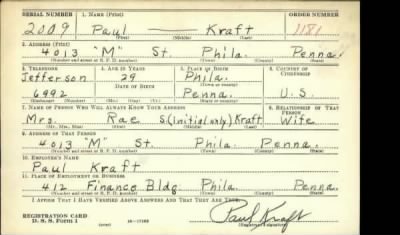 SERIAL NUMBER 1. NAME (Print) ORDER NUMBER
2009 Paul — Kraft 1181
(First) (Middle) (Last)
2. ADDRESS (Print)
4013 "M" St. Phila. Penna.
(Number and street or R. F. D. number) (Town) (County) (State)
3. TELEPHONE 4. AGE IN YEARS 5. PLACE OF BIRTH 6. COUNTRY OF CITIZENSHIP
Jefferson 29 Phila.
DATE OF BIRTH
6992 Penna. U.S.
(Exchange) (Number) (Mo.) (Day) (Yr.) (State or country)
7. NAME OF PERSON WHO WILL ALWAYS KNOW YOUR ADDRESS 8. RELATIONSHIP OF THAT PERSON
Mrs. Rae S (initial only) Kraft Wife
(Mr., Mrs., Miss) (First) (Middle) (Last)
9. ADDRESS OF THAT PERSON
4013 "M" St. Phila. Penna.
(Number and street or R. F. D. number) (Town) (County) (State)
10. EMPLOYER'S NAME
Paul Kraft
11. PLACE OF EMPLOYMENT OR BUSINESS
412 Finance Bldg. Phila. Penna.
(Number and street or R. F. D. number) (Town) (County) (State)
I AFFIRM THAT I HAVE VERIFIED ABOVE ANSWERS AND THAT THEY ARE TRUE.
REGISTRATION CARD
D. S. S. Form 1 (over) 16—17105 Paul Kraft